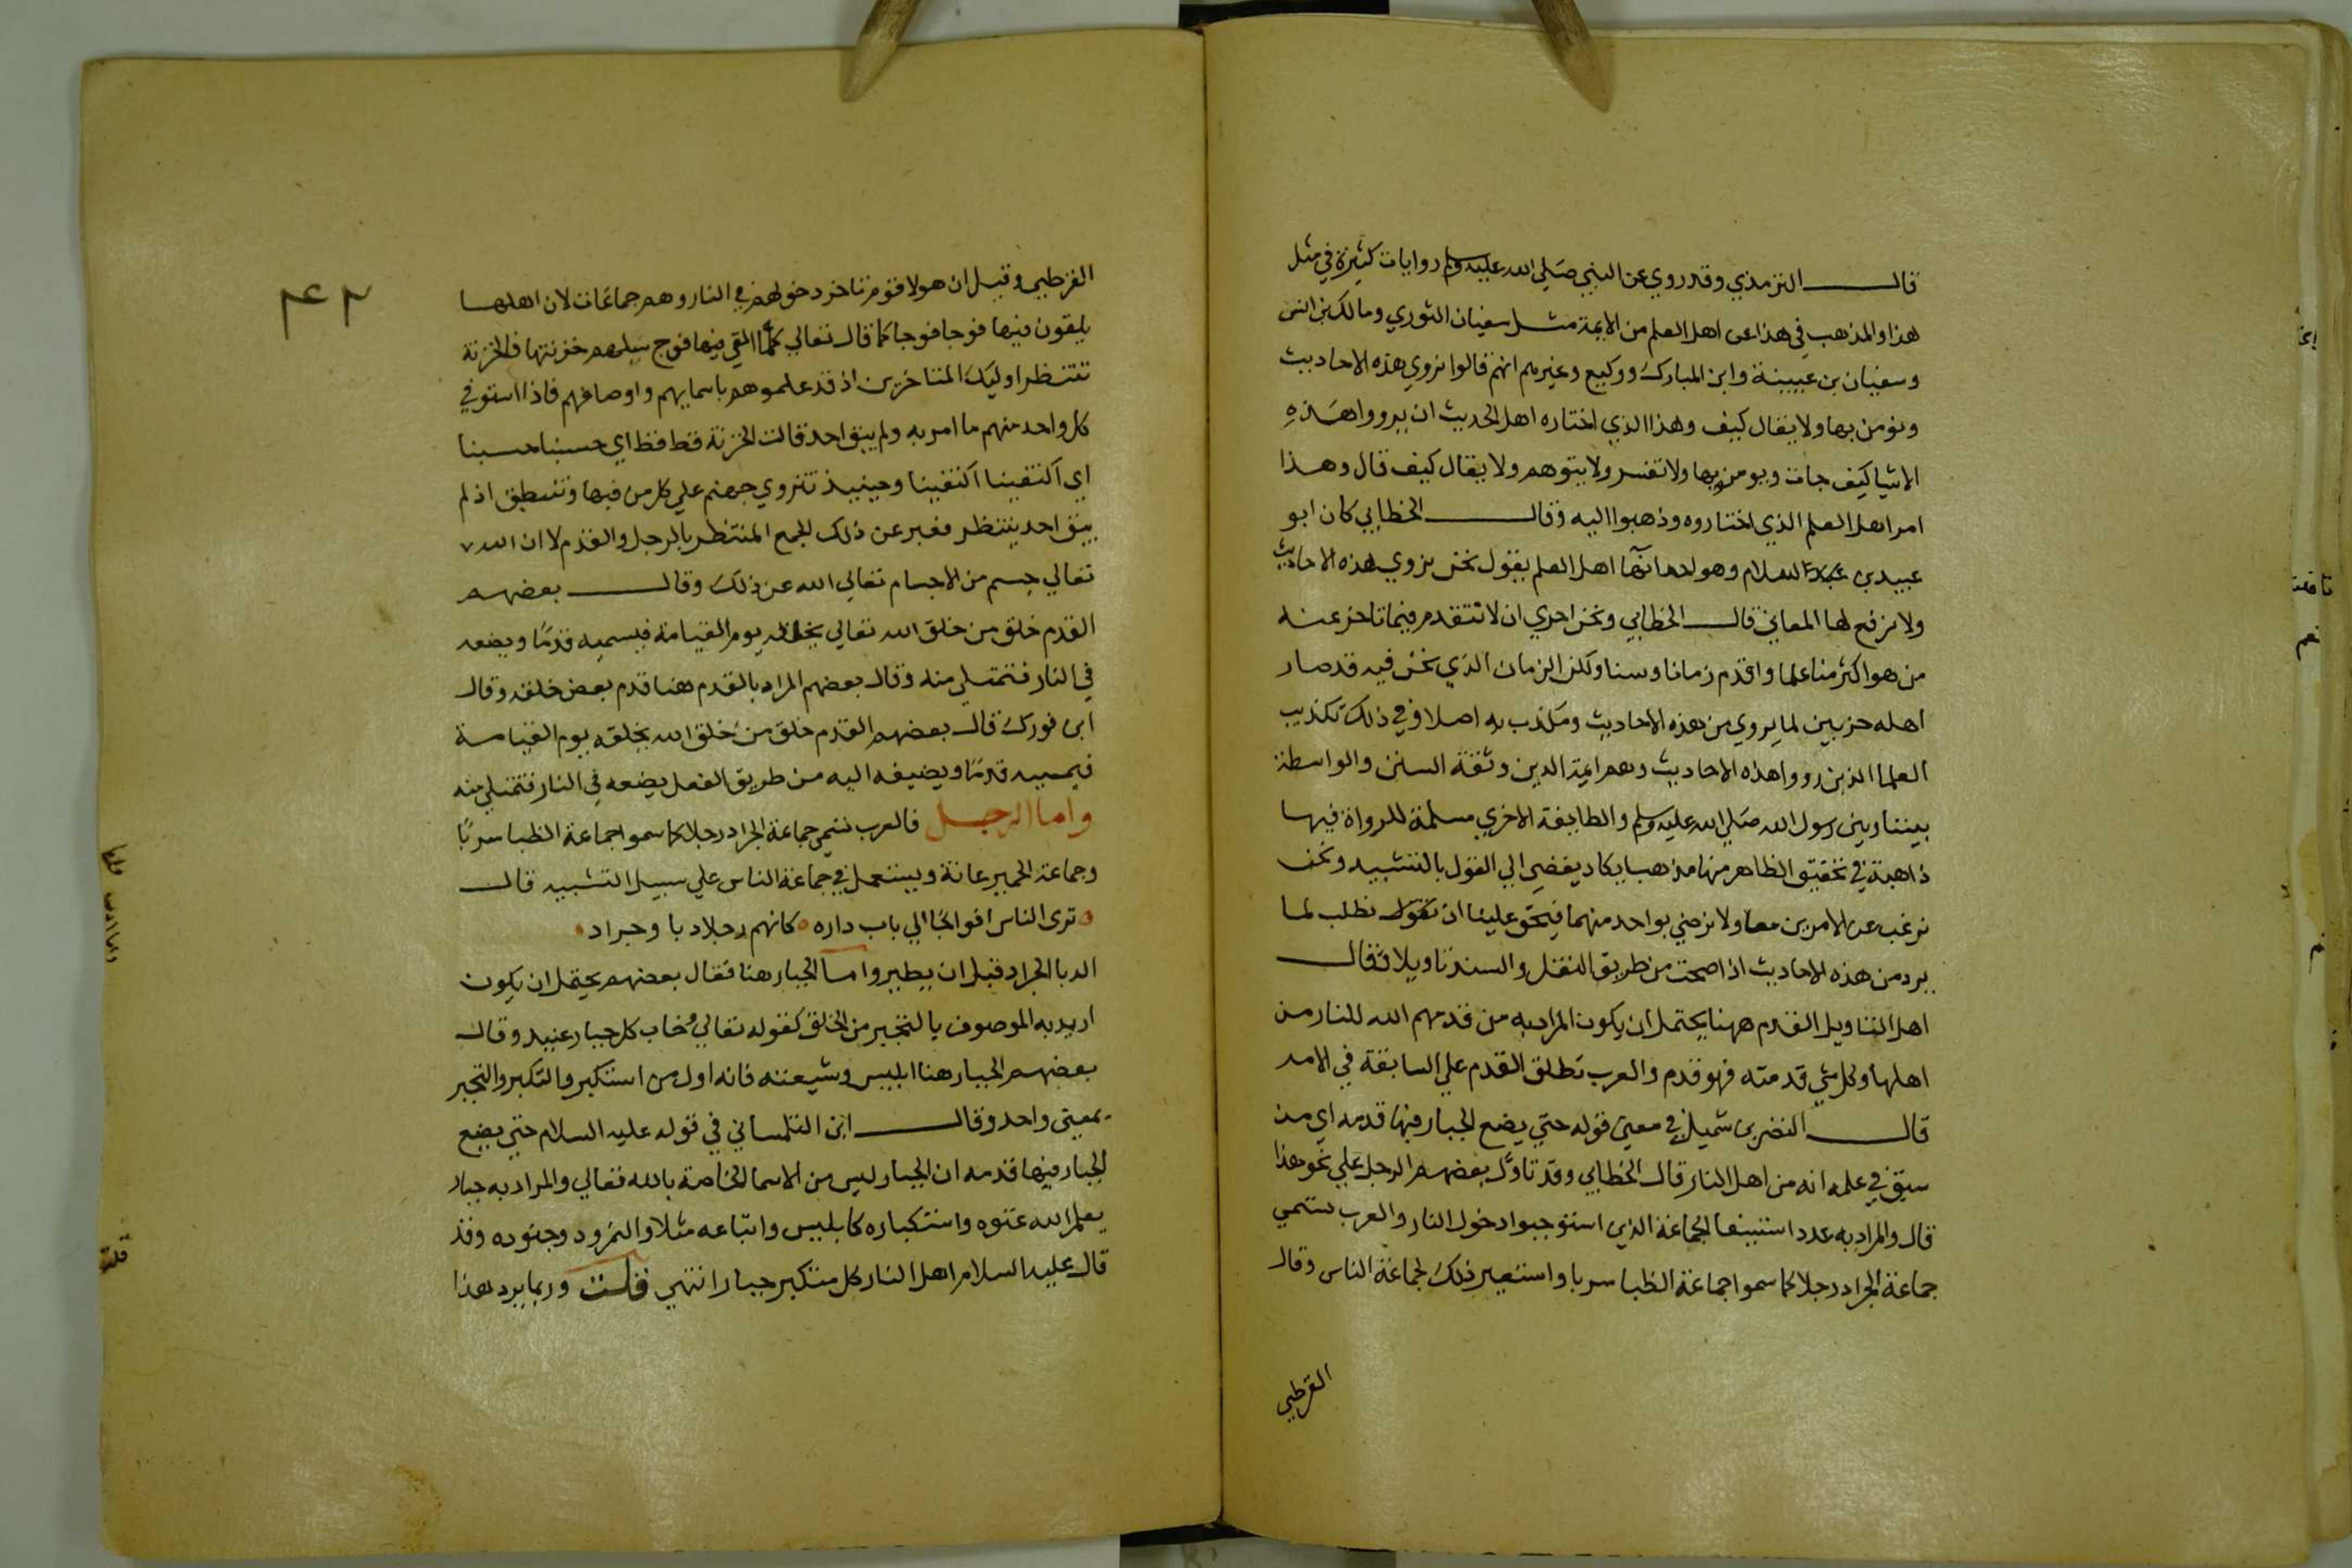 قال الترمذي وقد روي عن النبي صلى الله عليه وسلم روايات كثيرة في مثل
هذا والمذهب في هذا عن اهل العلم من الايمة مثل سفيان الثوري ومالك بن انس
وسفيان بن عيينة وابن المبارك ووكيع وغيرهم انهم قالوا نروي هذه الاحاديث
ونومن بها ولا يقال كيف وهذا الذي اختاره اهل الحديث ان يرووا هذه
الاشيا كيف جات ويومن بها ولا تفسر ولا يتوهم ولا يقال كيف قال وهذا
امر اهل العلم الذي اختاروه وذهبوا اليه وقال الخطابي كان ابو
عبيد بن سلام وهو احد انها اهل العلم يقول نحن نروي هذه الاحاديث
ولا نرفع لها المعاني قال الخطابي ونحن احري ان لا نتقدم فيما تاخر عنه
من هو اكثر منا علما واقدم زمانا وسنا ولكن الزمان الذي نحن فيه قد صار
اهله حزبين لما يروي من هذه الاحاديث ومكذب به اصلا وفي ذلك تكذيب
العلما الذين رووا هذه الاحاديث وهم ايمة الدين وثقة السنن والواسطة
بيننا وبين رسول الله صلي الله عليه وسلم والطايفة الاخري مسلمة للرواة فيها
ذاهبة في تحقيق الظاهر منها مذهبا يكاد يفضي الي القول بالتشبيه ونحن
نرغب عن الامرين معا ولا نرضي بواحد منهما فيحق علينا ان نطلب لما
يرد من هذه الاحاديث اذا صحت من طريق النقل والسند تاويلا فقال
اهل التاويل القدم ههنا يحتمل ان يكون المراد به من قدمهم الله للنار من
اهلها وكل شي قدمته فهو قدم والعرب تطلق القدم علي السابقة في الامر
قال النضر بن شميل في معني قوله حتي يضع الجبار فيها قدمه اي من
سبق في علمه انه من اهل النار قال الخطابي وقد تاول بعضهم الرجل علي نحو هذا
قال والمراد به عدد استيفا الجماعة الذي استوجبوا دخول النار والعرب تسمي
جماعة الجراد رجلا كما سموا جماعة الظبا سربا واستعير ذلك لجماعة الناس وقال
القرطبي
٤٢
القرطبي وقيل ان هولا قوم تاخر دخولهم في النار وهم جماعات لان اهلها
يلقون فيها فوجا فوجا كما قال تعالي كلما القي فيها فوج سالهم خزنتها فالخزنة
تنتظر اوليك المتاخرين اذ قد علموهم باسمايهم واوصافهم فاذا استوفي
كل واحد منهم ما امر به ولم يبق احد قالت الخزنة قط قط اي حسبنا حسبنا
اي اكتفينا اكتفينا وحينيذ تنزوي جهنم علي كل من فيها وتنطبق اذ لم
يبق احد ينتظر فعبر عن ذلك الجمع المنتظر بالرجل والقدم لا ان الله
تعالي جسم من الاجسام تعالي الله عن ذلك وقال بعضهم
القدم خلق من خلق الله تعالي يخلقه يوم القيامة فيسميه قدما ويضعه
في النار فتمتلي منه وقال بعضهم المراد بالقدم هنا قدم بعض خلقه وقال
ابن فورك قال بعضهم القدم خلق من خلق الله يخلقه يوم القيامة
فيسميه قدما ويضيفه اليه من طريق الفعل يضعه في النار فتمتلي منه
واما الرجل فالعرب تسمي جماعة الجراد رجلا كما سموا جماعة الظبا سربا
وجماعة الحمير عانة ويستعمل في جماعة الناس علي سبيل التشبيه قال
ترى الناس افواجا الي باب داره كانهم رجلا دبا وجراد
الدبا الجراد قبل ان يطير واما الجبار هنا فقال بعضهم يحتمل ان يكون
اريد به الموصوف بالتجبر من الخلق كقوله تعالي وخاب كل جبار عنيد وقال
بعضهم الجبار هنا ابليس وشيعته فانه اول من استكبر والتكبر والتجبر
بمعني واحد وقال ابن التلمساني في قوله عليه السلام حتي يضع
الجبار فيها قدمه ان الجبار ليس من الاسما الخاصة بالله تعالي والمراد به جبار
يعلم الله عتوه واستكباره كابليس واتباعه مثلا والنمرود وجنوده وقد
قال عليه السلام اهل النار كل متكبر جبار انتهي قلت وربما يرد هذا